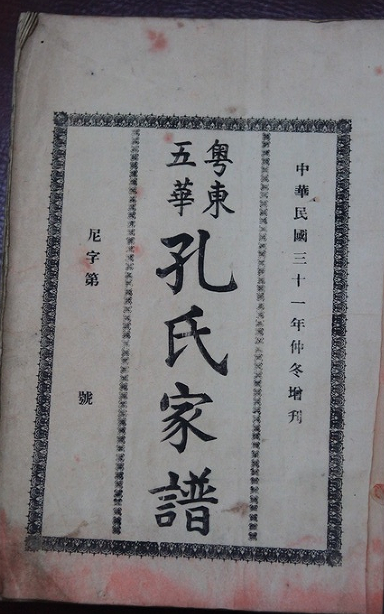 中華民國三十一年仲冬增刋
粵東
五華
孔氏家譜
尼字第 號